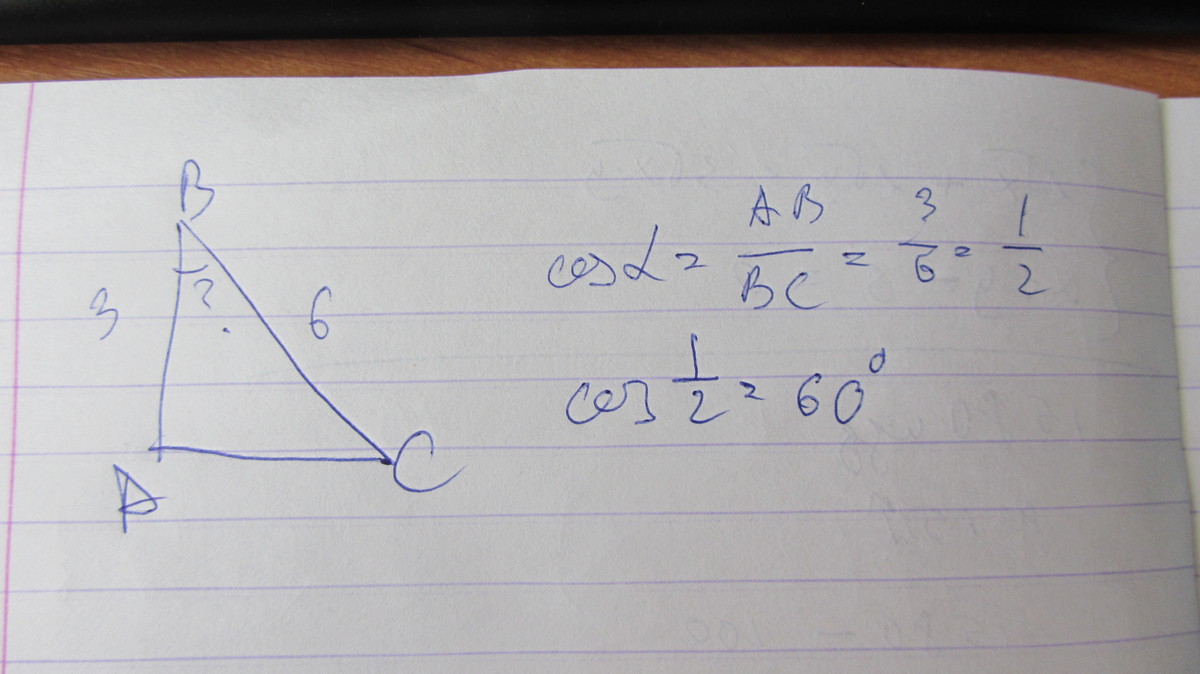 B
3
?
6
A
C
cos α = AB/BC = 3/6 = 1/2
cos 1/2 = 60°